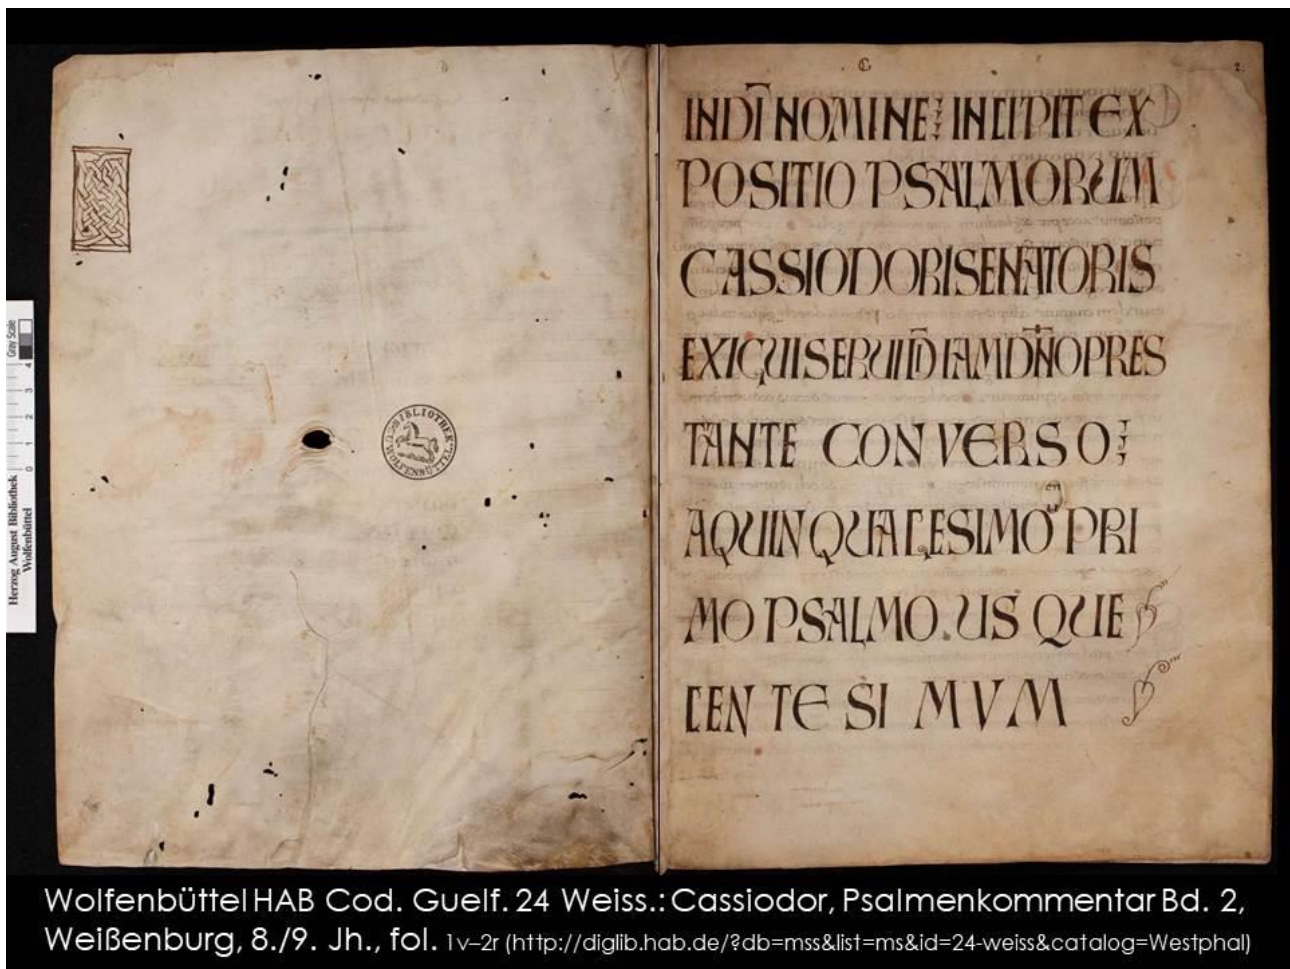 Gray Scale
4
3
2
1
0
Herzog August Bibliothek
Wolfenbüttel
BIBLIOTHEK
WOLFENBÜTTEL
2.
INDI NOMINE INCIPIT EX
POSITIO PSALMORUM
CASSIODORI SENATORIS
EXIGUI SERUI DI IAM DNO PRES
TANTE CONVERSO
A QUINQUAGESIMO PRI
MO PSALMO. USQUE
CENTESIMVM
Wolfenbüttel HAB Cod. Guelf. 24 Weiss.: Cassiodor, Psalmenkommentar Bd. 2,
Weißenburg, 8./9. Jh., fol. 1v–2r (http://diglib.hab.de/?db=mss&list=ms&id=24-weiss&catalog=Westphal)